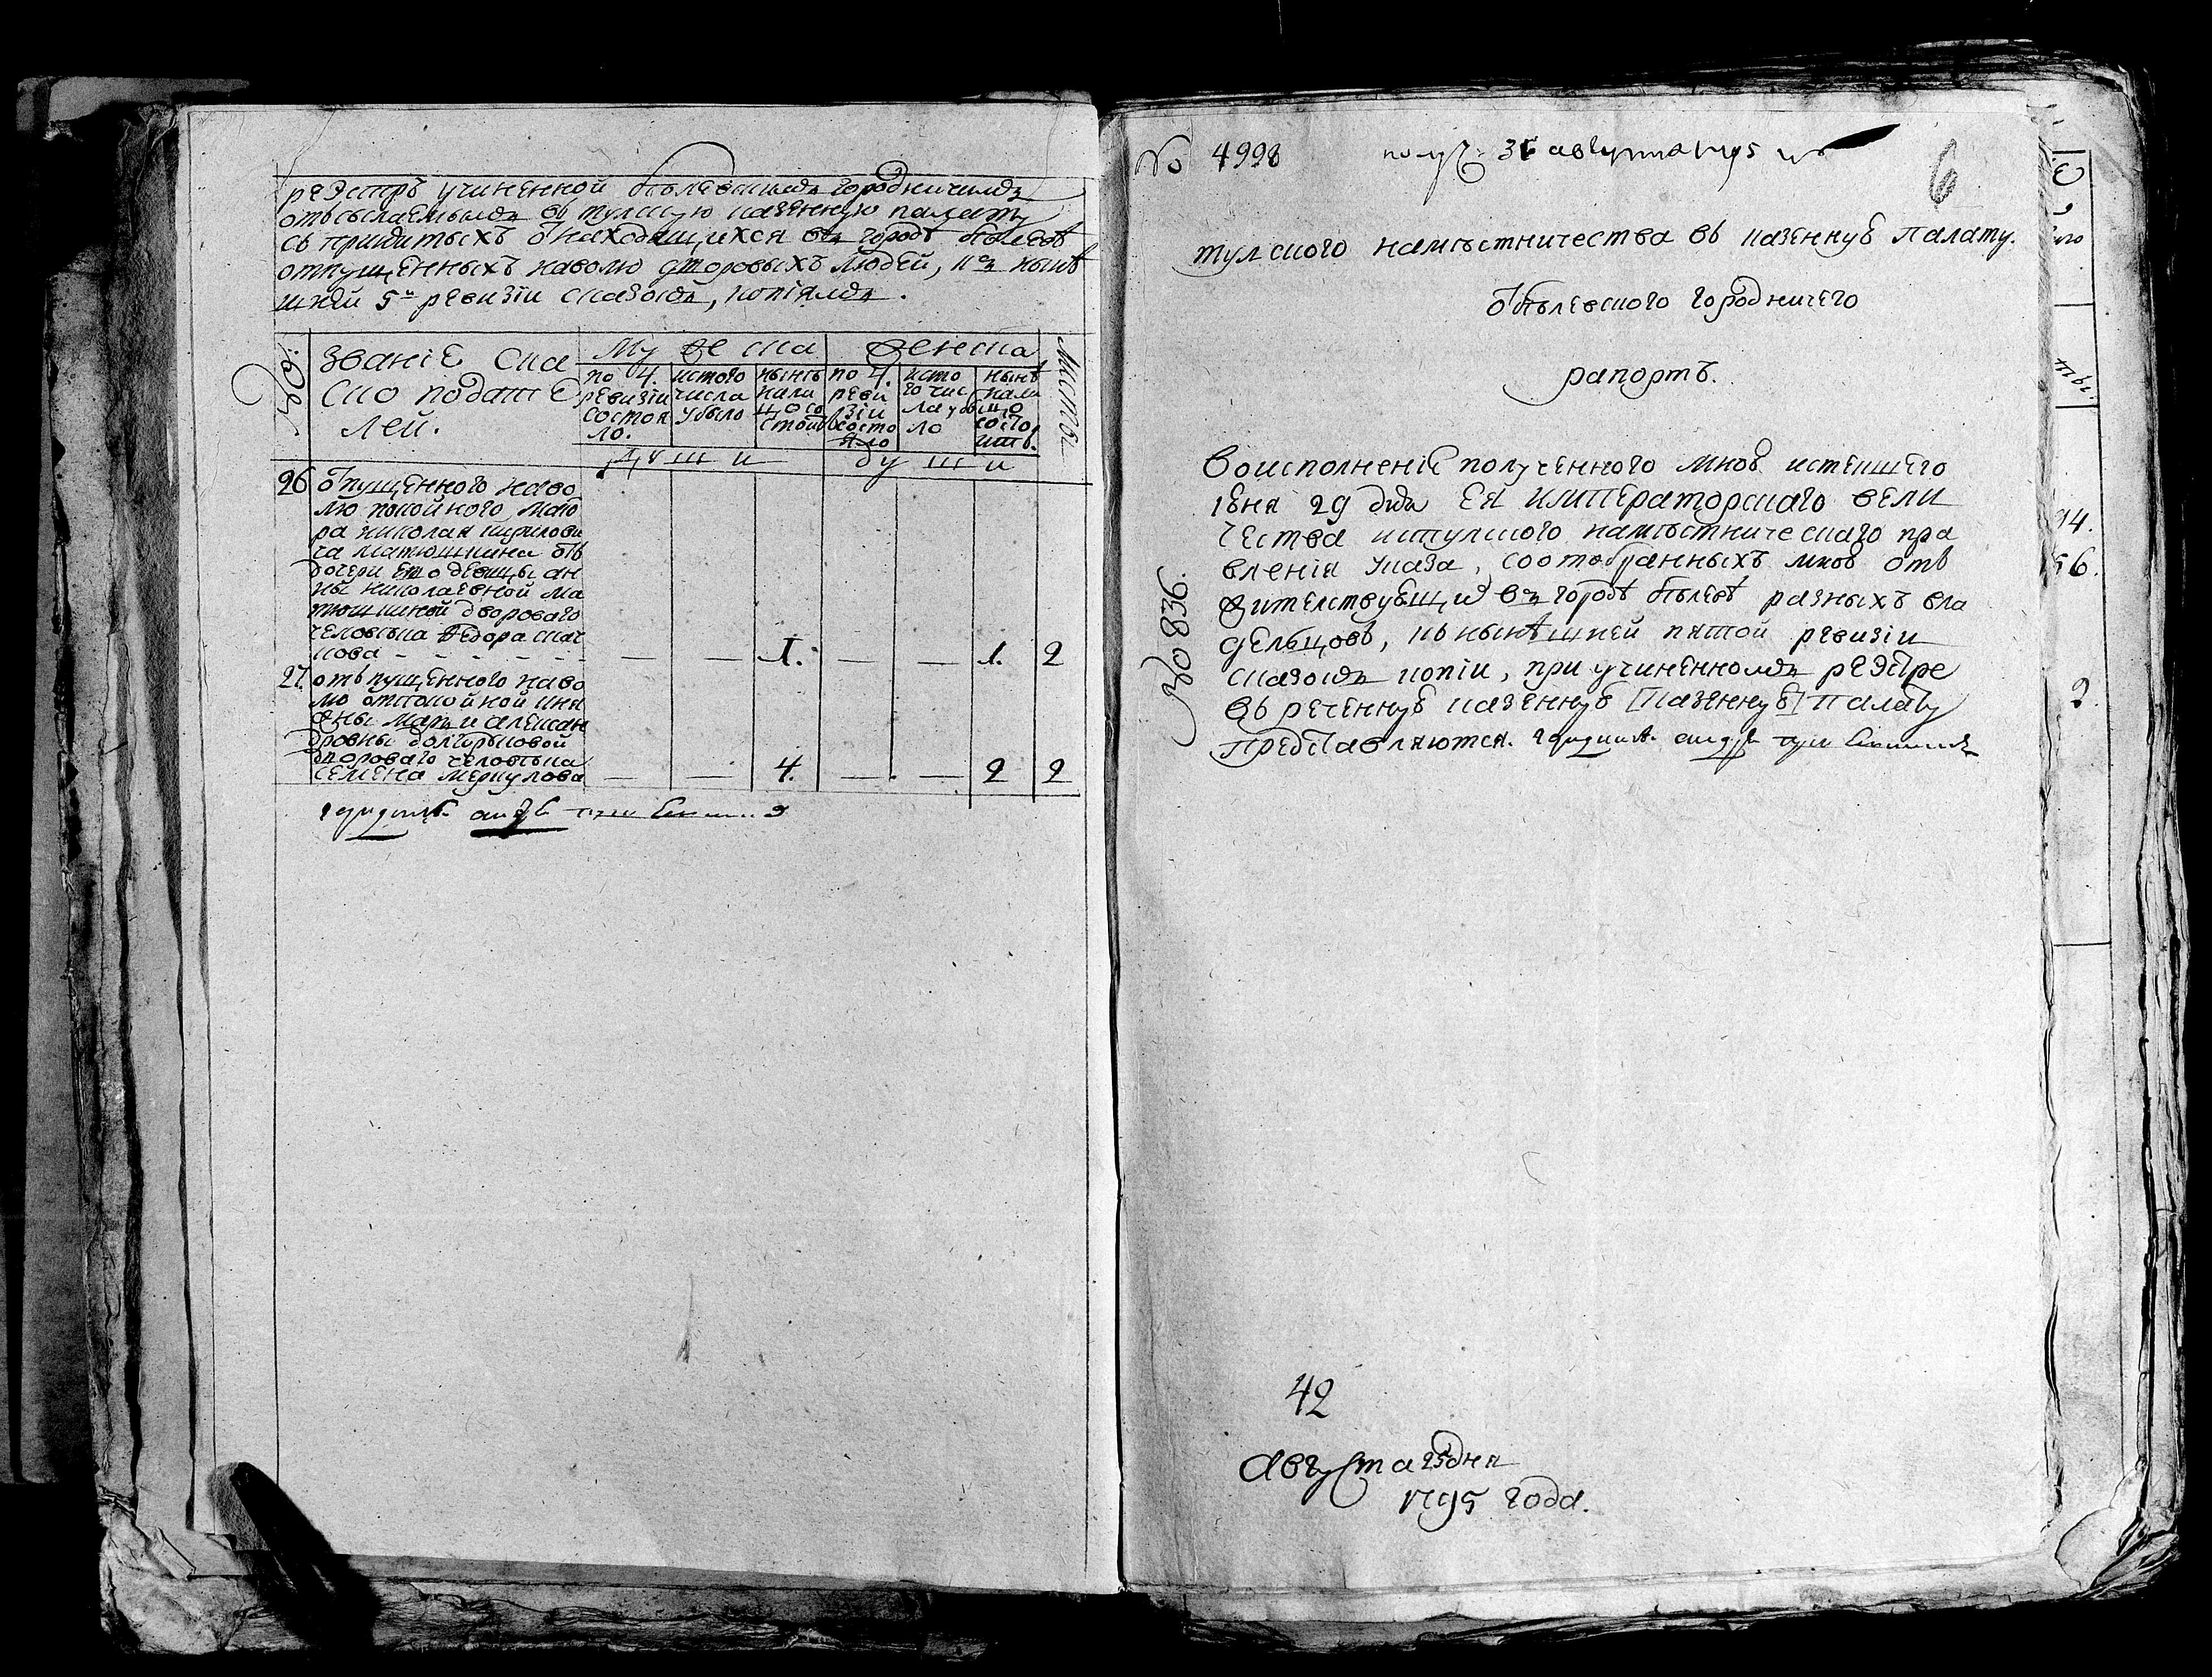 реэстръ учиненной бѣлевскимъ городничимъ
отъсылаемымъ въ тулскую казенную палату
съ принятыхъ о находящихся въ городѣ бѣлевѣ
отпущенныхъ наволю дворовыхъ людей, къ нынѣ
шней 5й ревизіи сказокъ, копіямъ.
№.
званіе ска
ско подате
лей.
Мужеска
женска
Листы
по 4. ревизіи состояло.
истого числа убыло
нынѣ налицо состоитъ
по 4. ревизіи состояло
истого числа убыло
нынѣ налицо состоитъ.
души
души
26 Опущенного наво
лю покойного маіо
ра николая кирилови
ча матюшкина отъ
дочери ево девицы ан
ны николаевной ма
тюшкиной дворового
человѣка Федора
кова — — 1. — — 1. 2
27. отъпущенного наво
лю отпокойной кня
жны марьи алексан
дровны долгорыковой
двороваго человѣка
семена меркулова — — 4. — — 2 2
№ 4998
получ: 31 августа 1795 го
6
тулского намѣстничества въ казенную палату.
Ѿ бѣлевского городничего
рапортъ.
№ 836.
Воисполненіе полученного мною истекшего
іюня 29 дня ЕЯ ИМПЕРАТОРСкаго вели
чества истулского намѣстническаго пра
вленія указа, соотобранныхъ мною отъ
жителствующи въ городѣ бѣлевѣ разныхъ вла
дельцовъ, кь нынѣшней пятой ревизіи
сказокъ копіи, при учиненномъ реэстре
въ реченную казенную [казенную] палату
представляются.
42
Августа 25 дня
1795 года.